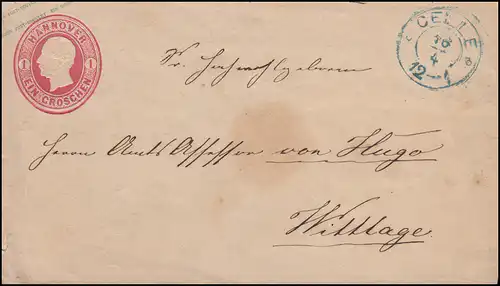 HANNOVER
1 1
EIN GROSCHEN
CELLE
18
4
12-1
Sr. Hochwohlgeboren
Herrn Amts Assessor von Hugo
Wittlage.